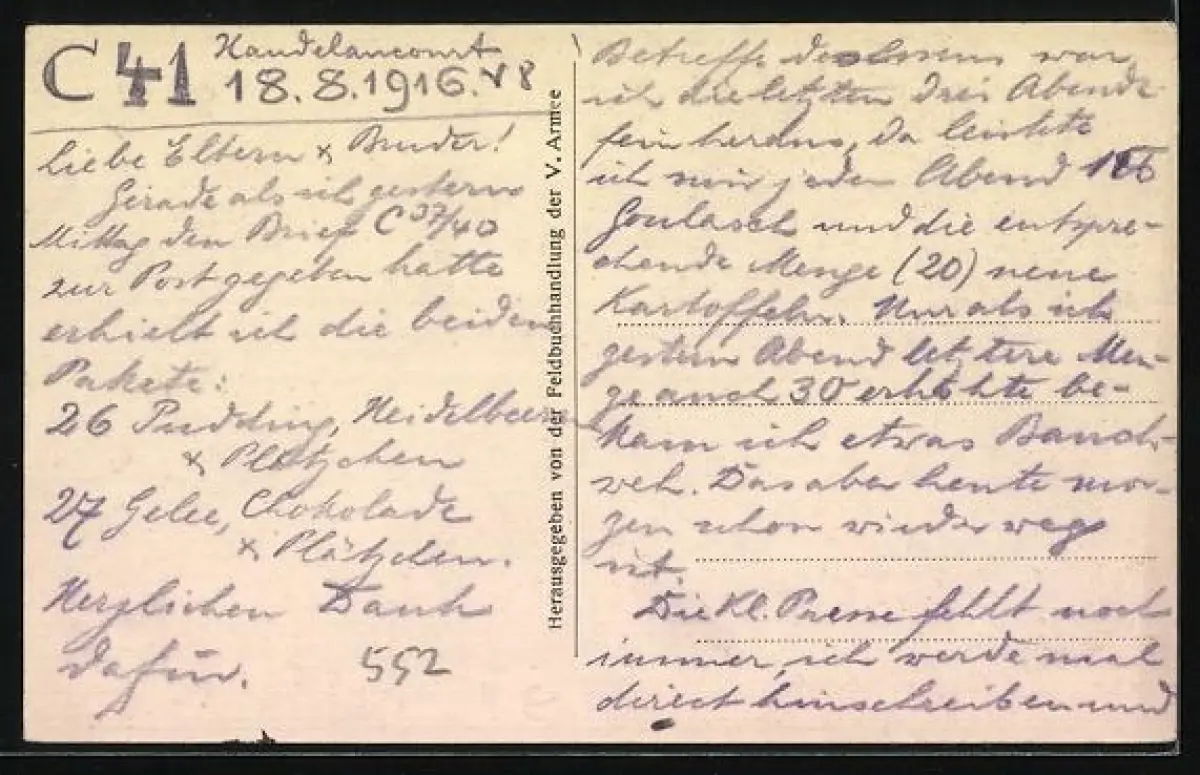 C 41 Xandelancourt
18.8.1916. V 8
Liebe Eltern & Bruder!
Gerade als ich gestern
Mittag den Brief C 37/40
zur Post gegeben hatte
erhielt ich die beiden
Pakete:
26 Pudding, Heidelbeeren
& Plätzchen
27 Gelee, Chokolade
& Plätzchen.
Herzlichen Dank
dafür.
552
Herausgegeben von der Feldbuchhandlung der V. Armee
Betreffs des Essens war
ich die letzten drei Abende
fein heraus, da leistete
ich mir jeden Abend
Goulasch und die entspre-
chende Menge (20) neue
Kartoffeln. Nur als ich
gestern Abend letztere Men-
ge auch 30 erhöhte be-
kam ich etwas Bauch-
weh. Das aber heute mor-
gen schon wieder weg
ist.
Die Kl. Presse fehlt noch
immer, ich werde mal
direct hinschreiben und